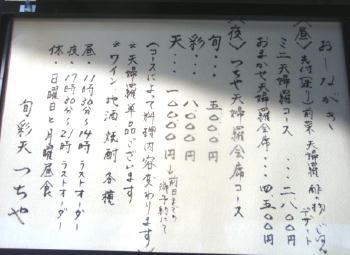 おしながき
〈昼〉先付(座付) 前菜 天婦羅 酢の物 ごはん
デザート
ミニ天婦羅コース・・・二、八〇〇円
おまかせ天婦羅会席・・・四、五〇〇円
〈夜〉つちや天婦羅会席コース
旬・・・五〇〇〇円
彩・・・八〇〇〇円
天・・・一〇〇〇〇円→前日までの
御予約にて
(コースによって料理内容変わります)
※天婦羅単品ございます
※ワイン・地酒・焼酎各種
昼・11時30分〜14時ラストオーダー
夜・17時30分〜21時ラストオーダー
休・日曜日と月曜昼食
旬彩天 つちや